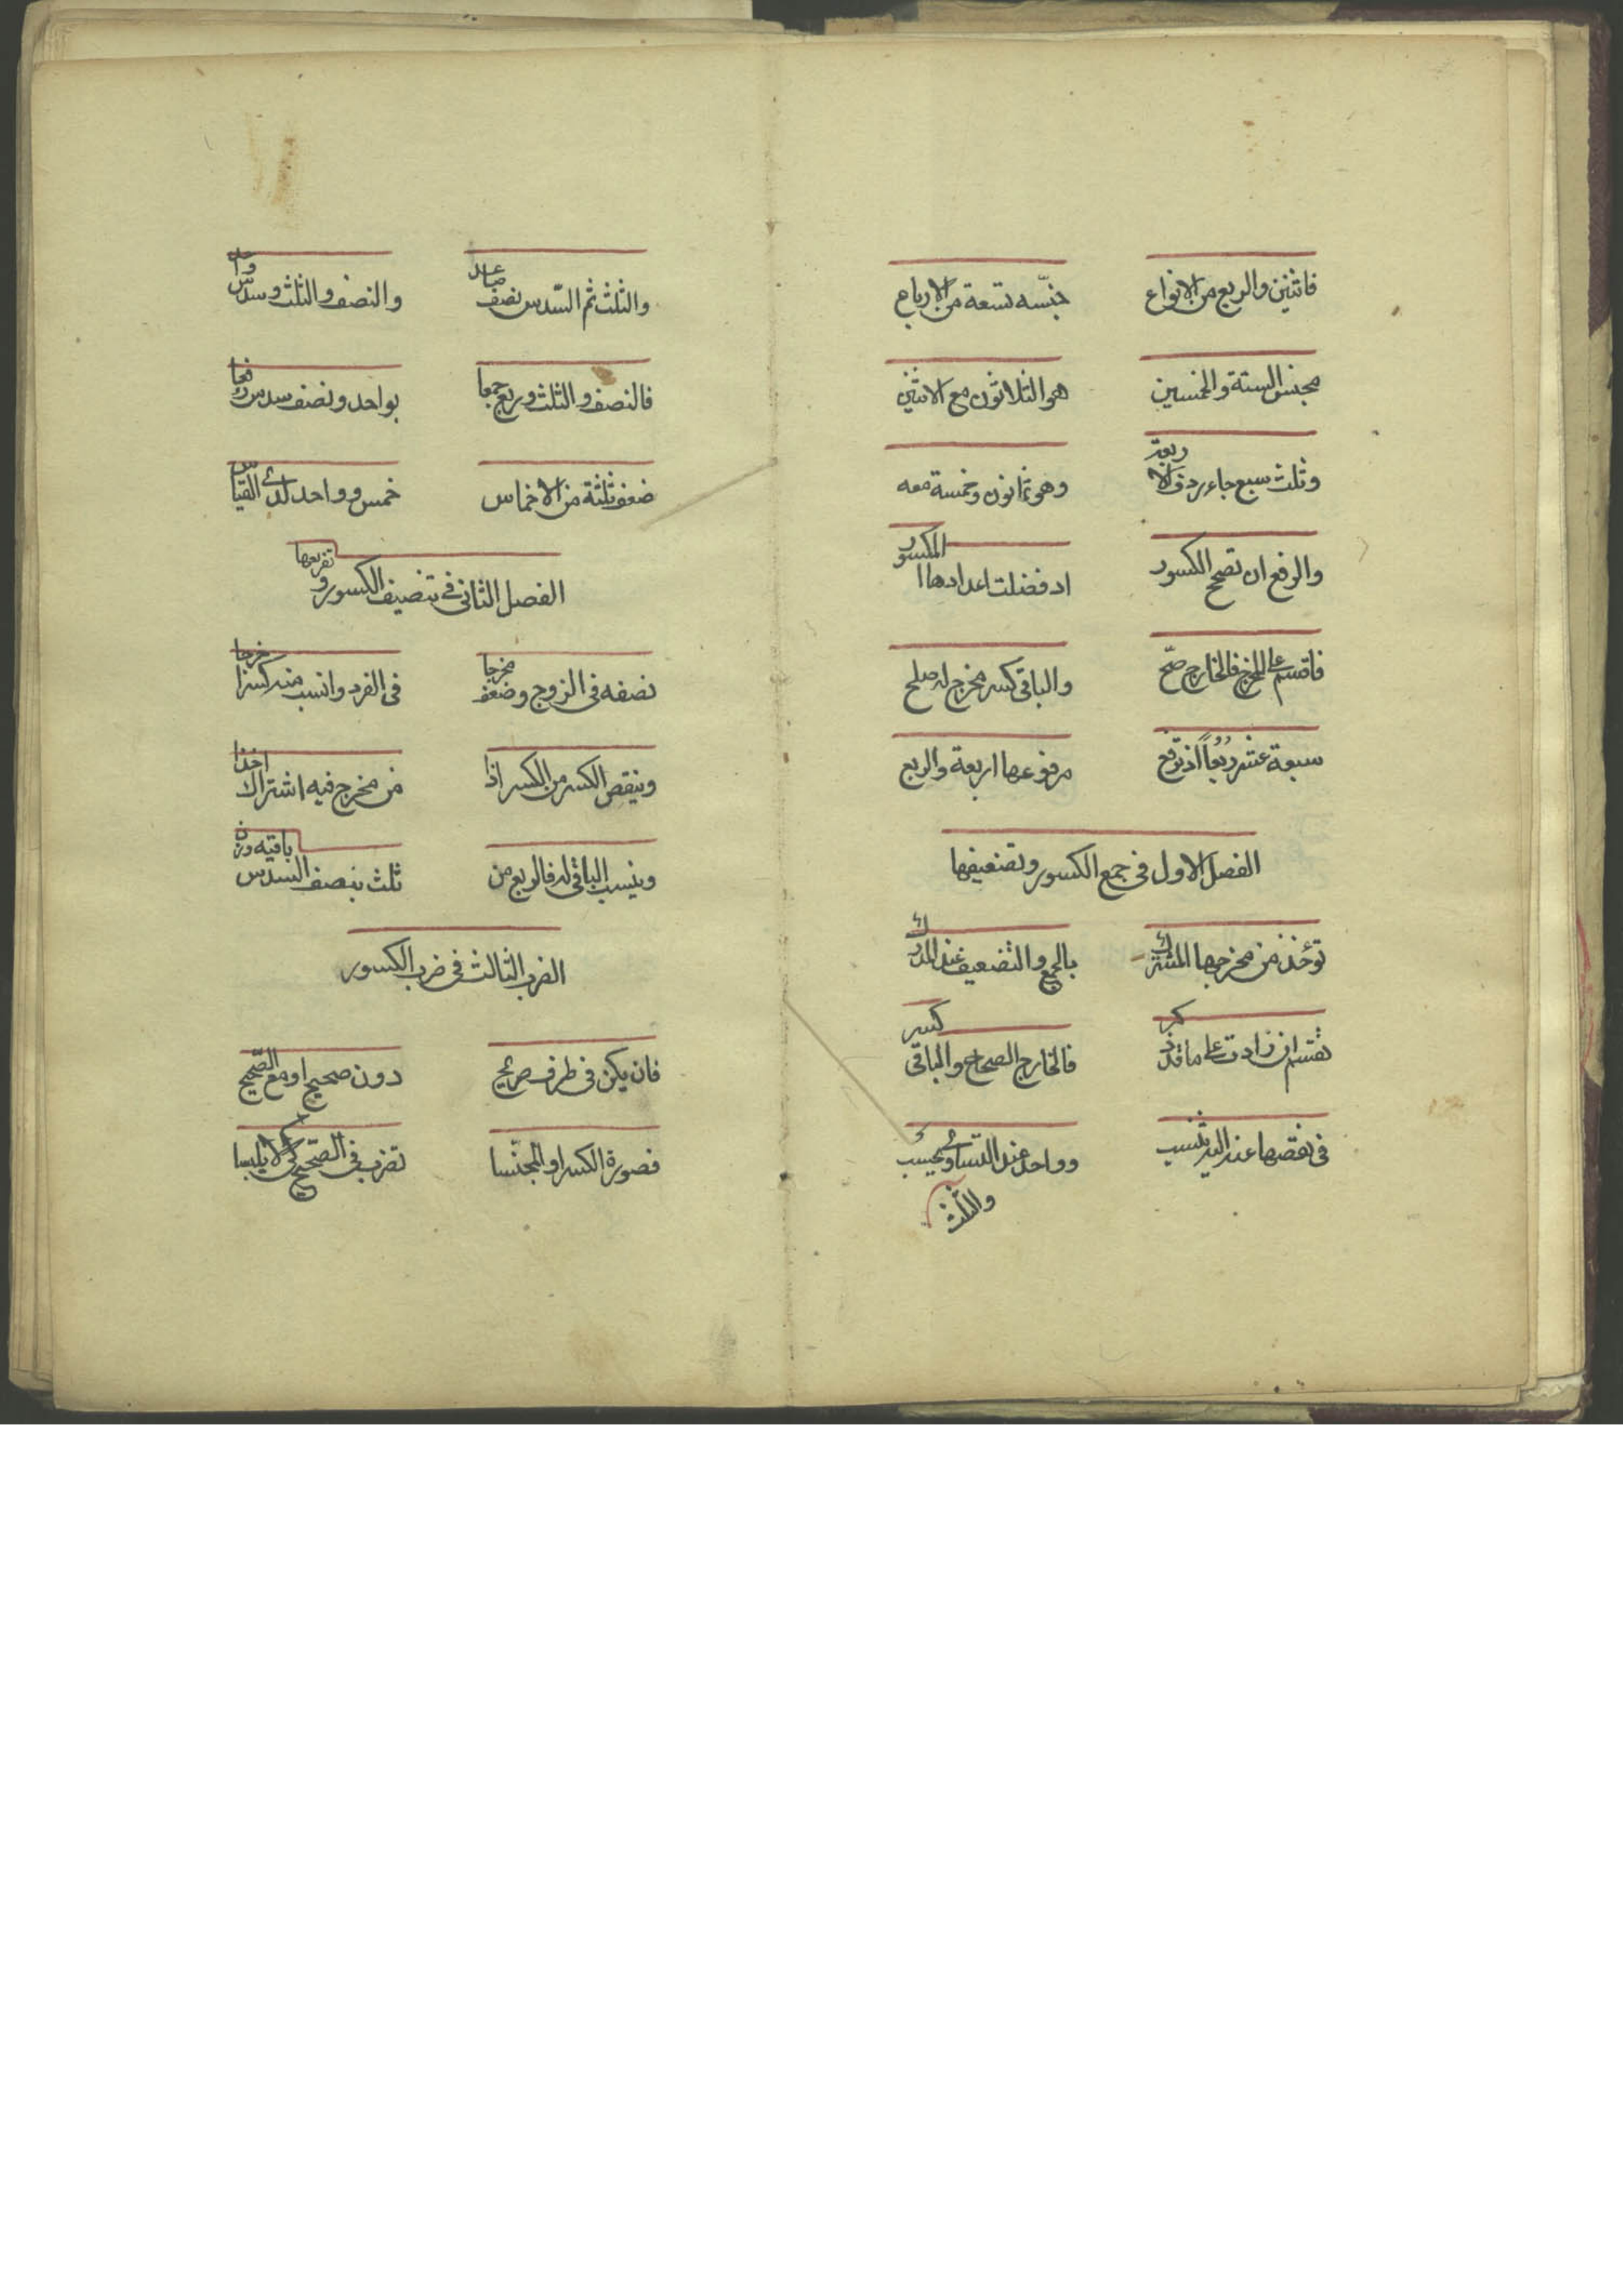 فاثنين والربع من الانواع جنّسه تسعة من الارباع
مجنس الستة والخمسين هو الثلاثون مع الاثنين
وثلث سبع جاء ردف الاربعة وهو ثمانون وخمسة معه
والرفع ان تصح الكسور اد فضلت اعدادها المكسور
فاقسم على المخرج فالخارج صح والباقي كسر مخرج له صلح
سبعة عشر ربعاً اذ ترفع مرفوعها اربعة والربع
الفصل الاول في جمع الكسور وتضعيفها
تؤخذ من مخرجها المشترك بالجمع والتضعيف عند المدرك
تقسم ان زادت على ما قد ذكر فالخارج الصحاح والباقي كسر
في نقصها عند اليه تنسب وواحد عند التساوي يحسب
والثلث
والثلث ثم السّدس نصف عادل والنصف والثلث وسدس واحد
فالنصف والثلث وربع جمعا بواحد ونصف سدس
ضعف ثلثة من الاخماس خمس وواحد لدى القياس
الفصل الثاني في تنصيف الكسور وتفريعها
نصفه في الزوج وضعف مخرجا في الفرد وانسب منه كسرا خرجا
وينقص الكسر من الكسر اذا من مخرج فيه اشتراك اخذا
وينسب الباقي له فالربع من ثلث بنصف السدس باقيه
الضرب الثالث في ضرب الكسور
فان يكن في طرف صريح دون صحيح او مع الصّحيح
فصورة الكسر او المجنّسا تضرب في الصّحيح كي لا يلبسا